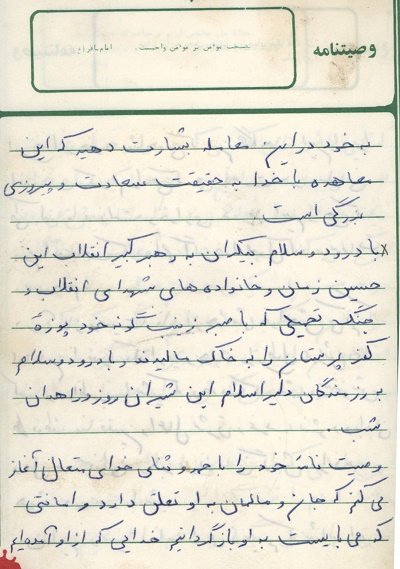 وصیتنامه
نصیحت مؤمن بر مؤمن واجبست. امام باقر(ع)
به خود در این معامله بشارت دهید که این
معاهده با خدا به حقیقت سعادت و پیروزی
بزرگی است.
با درود و سلام بیکران به رهبر کبیر انقلاب این
حسین زمان و خانواده های شهدای انقلاب و
جنگ تحمیلی که با صبر زینب گونه خود پوزهٔ
کفر پرستان را به خاک مالیدند و با درود و سلام
به رزمندگان دلیر اسلام این شیران روز و زاهدان
شب.
وصیت نامه خود را با حمد و ثنای خدای متعال آغاز
می کنم که جان و مالمان به او تعلق دارد و امانتی
که می بایست به او بازگردانیم خدایی که از او آمده ایم